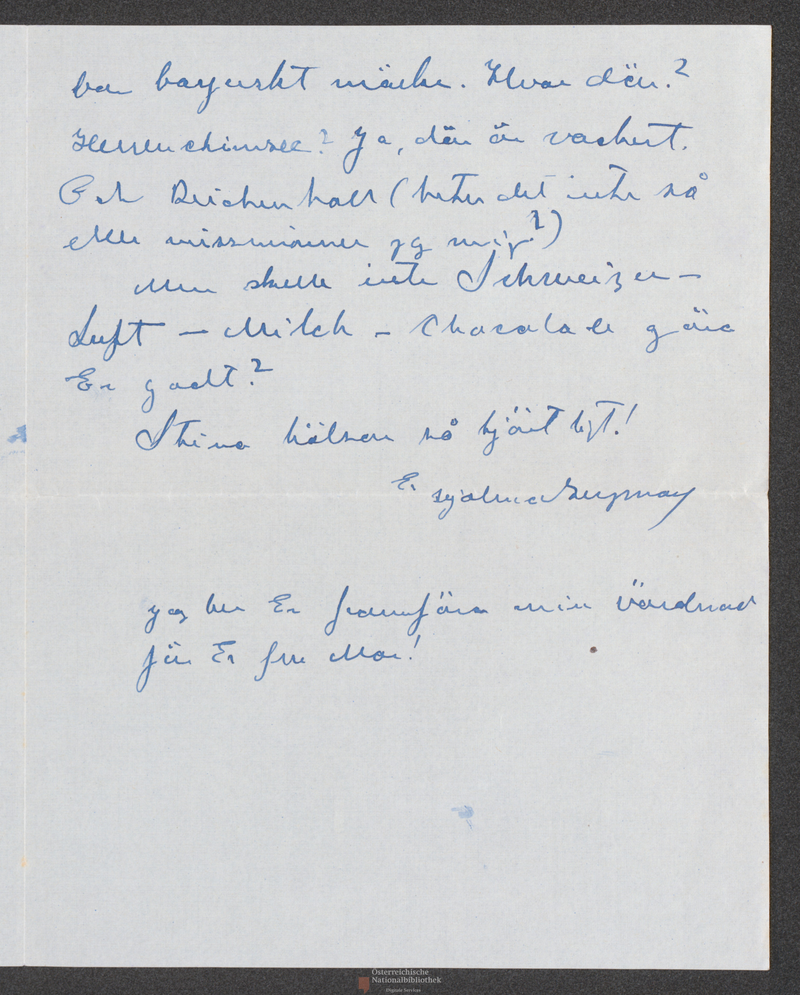 bar bayerskt märke. Hvar där?
Herrenchimsee? Ja, där är vackert.
Och Reichenhall (heter det inte så
eller missminner jag mig?)
Men skulle inte Schweizer-
Luft - Milch - Chocolade göra
Er godt?
Stina hälsar så hjärtligt!
Er
jag ber Er framföra min Vördnad
för Er fru Mor!
Österreichische
Nationalbibliothek